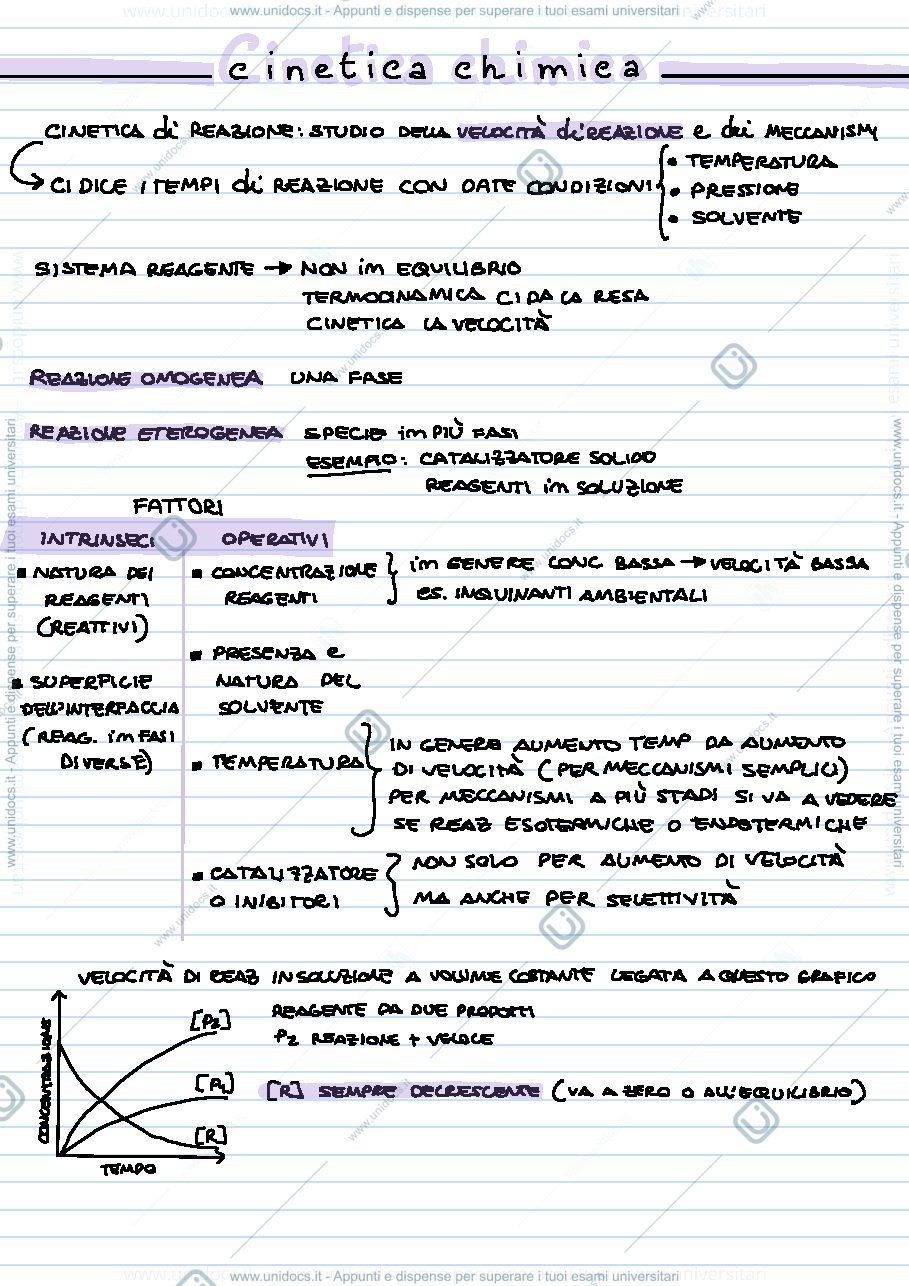 www.unidocs.it - Appunti e dispense per superare i tuoi esami universitari
Cinetica chimica
CINETICA di REAZIONE: STUDIO DELLA VELOCITÀ di REAZIONE e dei MECCANISMI
CI DICE I TEMPI di REAZIONE CON DATE CONDIZIONI
• TEMPERATURA
• PRESSIONE
• SOLVENTE
SISTEMA REAGENTE → NON in EQUILIBRIO
TERMODINAMICA CI DA LA RESA
CINETICA LA VELOCITÀ
REAZIONE OMOGENEA UNA FASE
REAZIONE ETEROGENEA SPECIE in PIÙ FASI
ESEMPIO: CATALIZZATORE SOLIDO
REAGENTI in SOLUZIONE
FATTORI
INTRINSECI OPERATIVI
▪ NATURA DEI
REAGENTI
(REATTIVI)
▪ SUPERFICIE
DELL'INTERFACCIA
(REAG. in FASI
DIVERSE)
▪ CONCENTRAZIONE
REAGENTI
in GENERE CONC. BASSA → VELOCITÀ BASSA
es. INQUINANTI AMBIENTALI
▪ PRESENZA e
NATURA DEL
SOLVENTE
▪ TEMPERATURA
IN GENERE AUMENTO TEMP DA AUMENTO
DI VELOCITÀ (PER MECCANISMI SEMPLICI)
PER MECCANISMI A PIÙ STADI SI VA A VEDERE
SE REAZ ESOTERMICHE O ENDOTERMICHE
▪ CATALIZZATORE
O INIBITORI
NON SOLO PER AUMENTO DI VELOCITÀ
MA ANCHE PER SELETTIVITÀ
VELOCITÀ DI REAZ IN SOLUZIONE A VOLUME COSTANTE LEGATA A QUESTO GRAFICO
CONCENTRAZIONE
[P2]
[P1]
[R]
TEMPO
REAGENTE DA DUE PRODOTTI
P2 REAZIONE + VELOCE
[R] SEMPRE DECRESCENTE (VA A ZERO O ALL'EQUILIBRIO)
www.unidocs.it - Appunti e dispense per superare i tuoi esami universitari
www.unidocs.it - Appunti e dispense per superare i tuoi esami universitari
www.unidocs.it - Appunti e dispense per superare i tuoi esami universitari